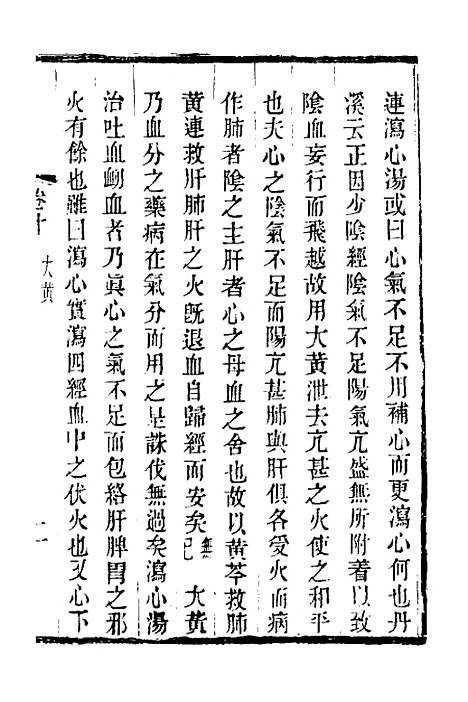 連瀉心湯或曰心氣不足不用補心而更瀉心何也丹
溪云正因少陰經陰氣不足陽氣亢盛無所附着以致
陰血妄行而飛越故用大黃泄去亢甚之火使之和平
也夫心之陰氣不足而陽亢甚肺與肝俱各受火而病
作肺者陰之主肝者心之母血之舍也故以黃芩救肺
黃連救肝肺肝之火旣退血自歸經而安矣 無己 大黃
乃血分之藥病在氣分而用之是誅伐無過矣瀉心湯
治吐血衂血者乃眞心之氣不足而包絡肝脾胃之邪
火有餘也雖曰瀉心實瀉四經血中之伏火也又心下
卷十 大黃